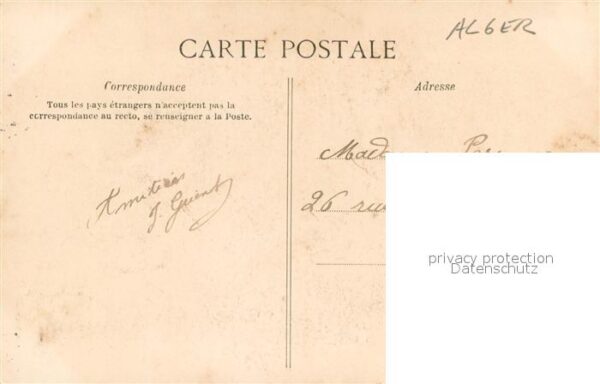 ALGER
CARTE POSTALE
Correspondance
Tous les pays étrangers n'acceptent pas la
correspondance au recto, se renseigner a la Poste.
Amitiés
J.
Adresse
26 rue
privacy protection
Datenschutz